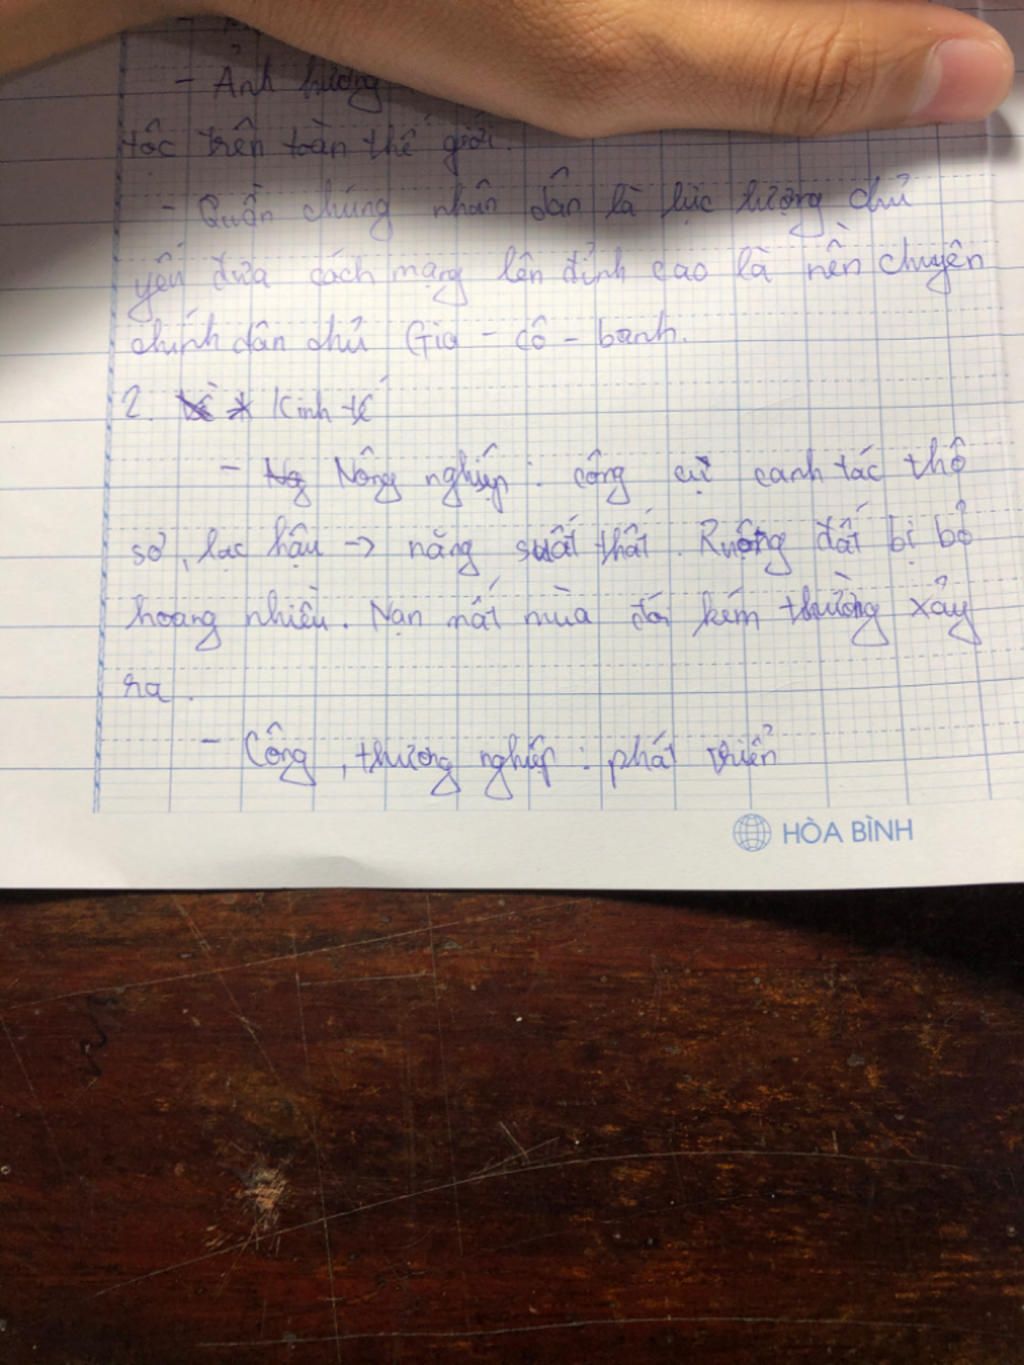 - Ảnh hưởng
tôc trên toàn thế giới.
- Quần chúng nhân dân là lực lượng chủ
yếu đưa cách mạng lên đỉnh cao là nền chuyên
chính dân chủ Gia - cô - banh.
2. Kinh tế
- Nông nghiệp : công cụ canh tác thô
sơ, lạc hậu -> năng suất thất. Ruộng đất bị bỏ
hoang nhiều. Nạn mất mùa đói kém thường xảy
ra.
- Công, thương nghiệp : phát triển
HÒA BÌNH